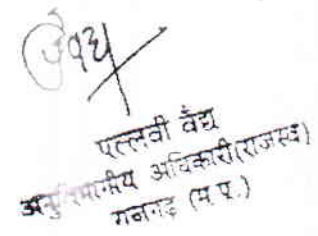 पल्लवी वैद्य
अनुविभागीय अधिकारी(राजस्व)
(म.प्र.)